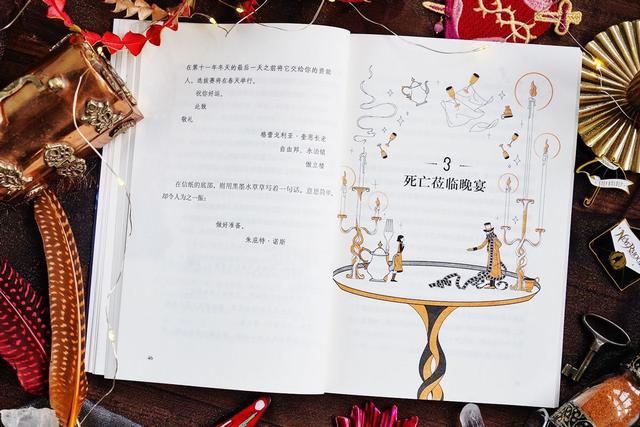 在第十一年冬天的最后一天之前将它交给你的资助
人。选拔赛将在春天举行。
祝你好运。
此致
敬礼
格雷戈利亚·奎恩长老
自由邦，永泊镇
傲立楼
在信纸的底部，则用黑墨水草草写着一句话，意思简单，
却令人为之一振：
做好准备。
朱庇特·诺斯
46
3
死亡莅临晚宴